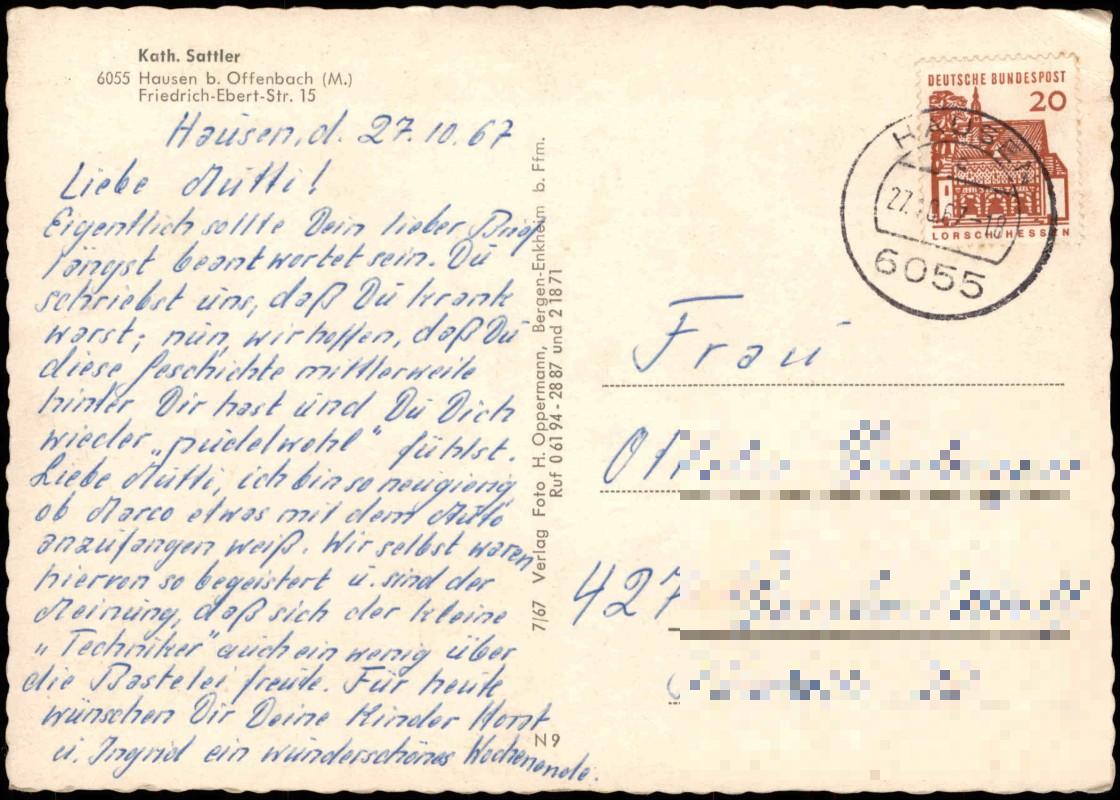 Kath. Sattler
6055 Hausen b. Offenbach (M.)
Friedrich-Ebert-Str. 15
Hausen, d. 27.10.67
Liebe Mutti!
Eigentlich sollte Dein lieber Brief
längst beantwortet sein. Du
schriebst uns, daß Du krank
warst; nun, wir hoffen, daß Du
diese Geschichte mittlerweile
hinter Dir hast und Du Dich
wieder „pudelwohl" fühlst.
Liebe Mutti, ich bin so neugierig,
ob Marco etwas mit dem Auto
anzufangen weiß. Wir selbst waren
hiervon so begeistert u. sind der
Meinung, daß sich der kleine
„Techniker" auch ein wenig über
die Bastelei freute. Für heute
wünschen Dir Deine Kinder Horst
u. Ingrid ein wunderschönes Wochenende.
7/67 Verlag Foto H. Oppermann, Bergen-Enkheim b. Ffm.
Ruf 0 61 94 - 28 87 und 2 18 71
Z 9
DEUTSCHE BUNDESPOST
20
LORSCH/HESSEN
HAUSEN
27.10.67-18
6055
Frau
427